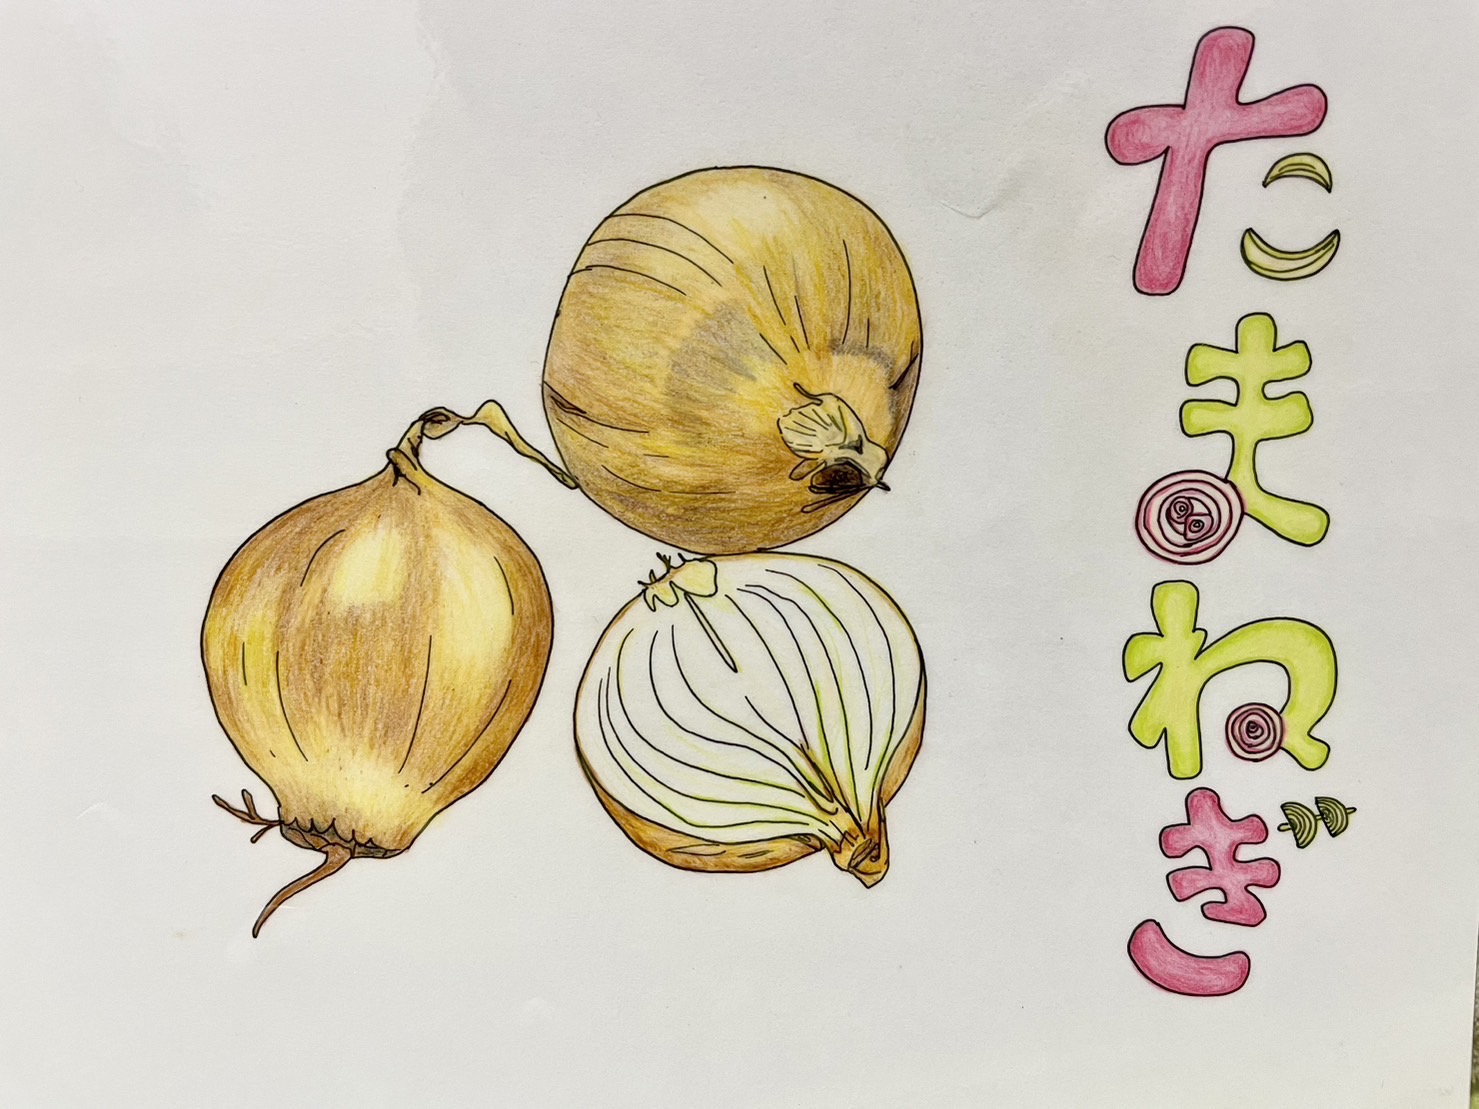 たまねぎ